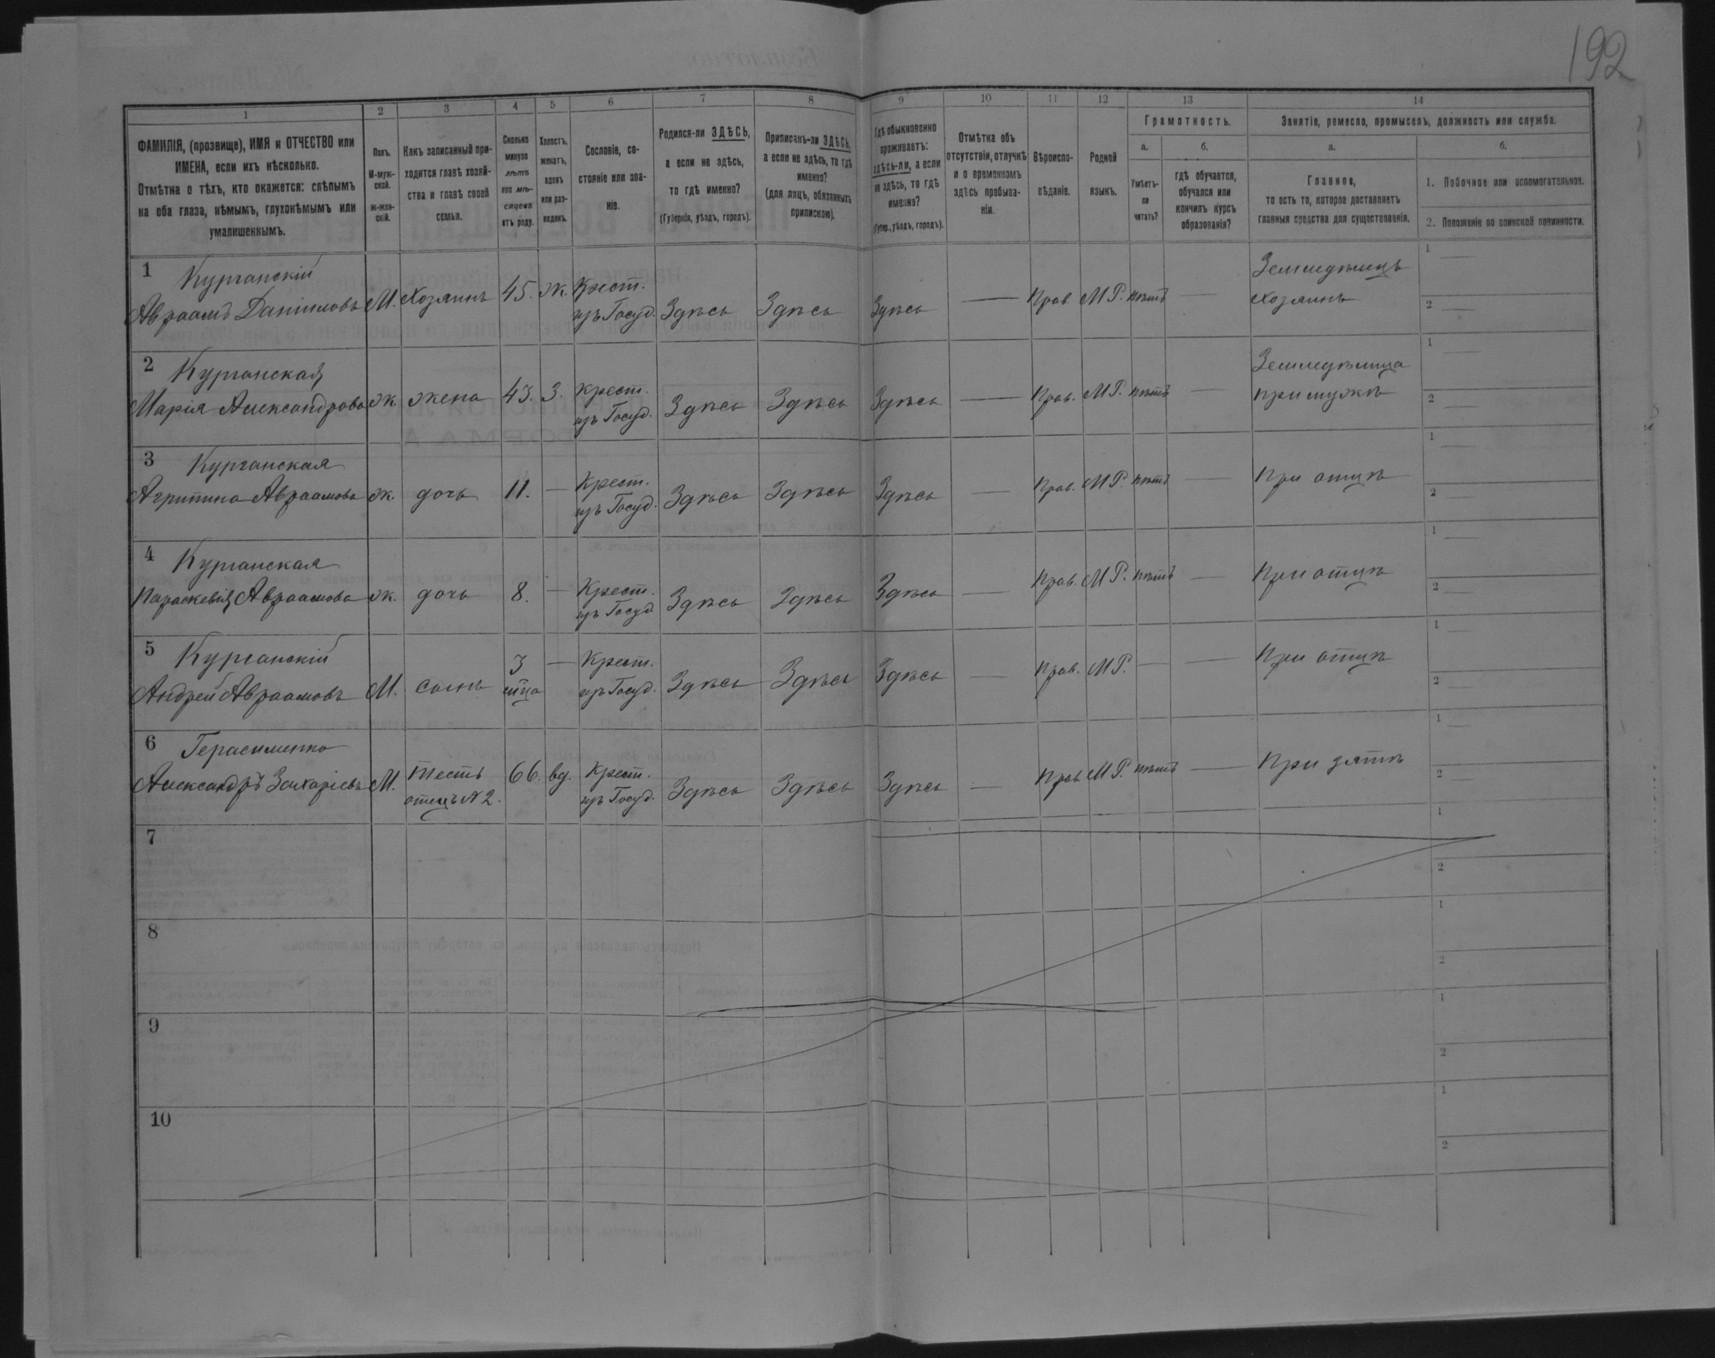 192
1 2 3 4 5 6 7 8 9 10 11 12 13 14
ФАМИЛІЯ, (прозвище), ИМЯ и ОТЧЕСТВО или
ИМЕНА, если ихъ нѣсколько.
Отмѣтка о тѣхъ, кто окажется: слѣпымъ
на оба глаза, нѣмымъ, глухонѣмымъ или
умалишеннымъ.
Полъ.
М-муж-
ской.
ж-жен-
скій.
Какъ записанный при-
ходится главѣ хозяй-
ства и главѣ своей
семьи.
Сколько
минуло
лѣтъ
или мѣ-
сяцевъ
отъ роду.
Холостъ,
женатъ,
вдовъ
или раз-
веденъ.
Сословіе, со-
стояніе или зва-
ніе.
Родился-ли ЗДѢСЬ,
а если не здѣсь,
то гдѣ именно?
(Губернія, уѣздъ, городъ).
Приписанъ-ли ЗДѢСЬ,
а если не здѣсь, то гдѣ
именно?
(для лицъ, обязанныхъ
припискою).
Гдѣ обыкновенно
проживаетъ:
здѣсь-ли, а если
не здѣсь, то гдѣ
именно?
(Губер., уѣздъ, городъ).
Отмѣтка объ
отсутствіи, отлучкѣ
и о временномъ
здѣсь пребыва-
ніи.
Вѣроиспо-
вѣданіе.
Родной
языкъ.
Грамотность.
а.
Умѣетъ-
ли
читать?
б.
гдѣ обучается,
обучался или
кончилъ курсъ
образованія?
Занятіе, ремесло, промыселъ, должность или служба.
а.
Главное,
то есть то, которое доставляетъ
главныя средства для существованія.
б.
1. Побочное или вспомогательное.
2. Положеніе по воинской повинности.
1 Курганскій Крест. Земледѣлецъ 1 —
Авраамъ Даніиловъ М. Хозяинъ 45. Ж. изъ Госуд. Здѣсь Здѣсь Здѣсь — Прав. МР. нѣтъ — хозяинъ 2 —
2 Курганская Крест. Земледѣлица 1 —
Марія Александрова ж. жена 43. З. изъ Госуд. Здѣсь Здѣсь Здѣсь — Прав. МР. нѣтъ — при мужѣ 2 —
3 Курганская Крест. 1 —
Агрипина Авраамова ж. дочь 11. — изъ Госуд. Здѣсь Здѣсь Здѣсь — Прав. МР. нѣтъ — При отцѣ 2 —
4 Курганская Крест. 1 —
Параскевія Авраамова ж. дочь 8. — изъ Госуд. Здѣсь Здѣсь Здѣсь — Прав. МР. нѣтъ — При отцѣ 2 —
5 Курганскій 3 — Крест. 1 —
Андрей Авраамовъ М. сынъ м-ца изъ Госуд. Здѣсь Здѣсь Здѣсь — Прав. МР. — — При отцѣ 2 —
6 Герасименко тесть Крест. 1 —
Александръ Захаріевъ М. отецъ N 2. 66. вд. изъ Госуд. Здѣсь Здѣсь Здѣсь — Прав. МР. нѣтъ — При зятѣ 2 —
7 1
2
8 1
2
9 1
2
10 1
2